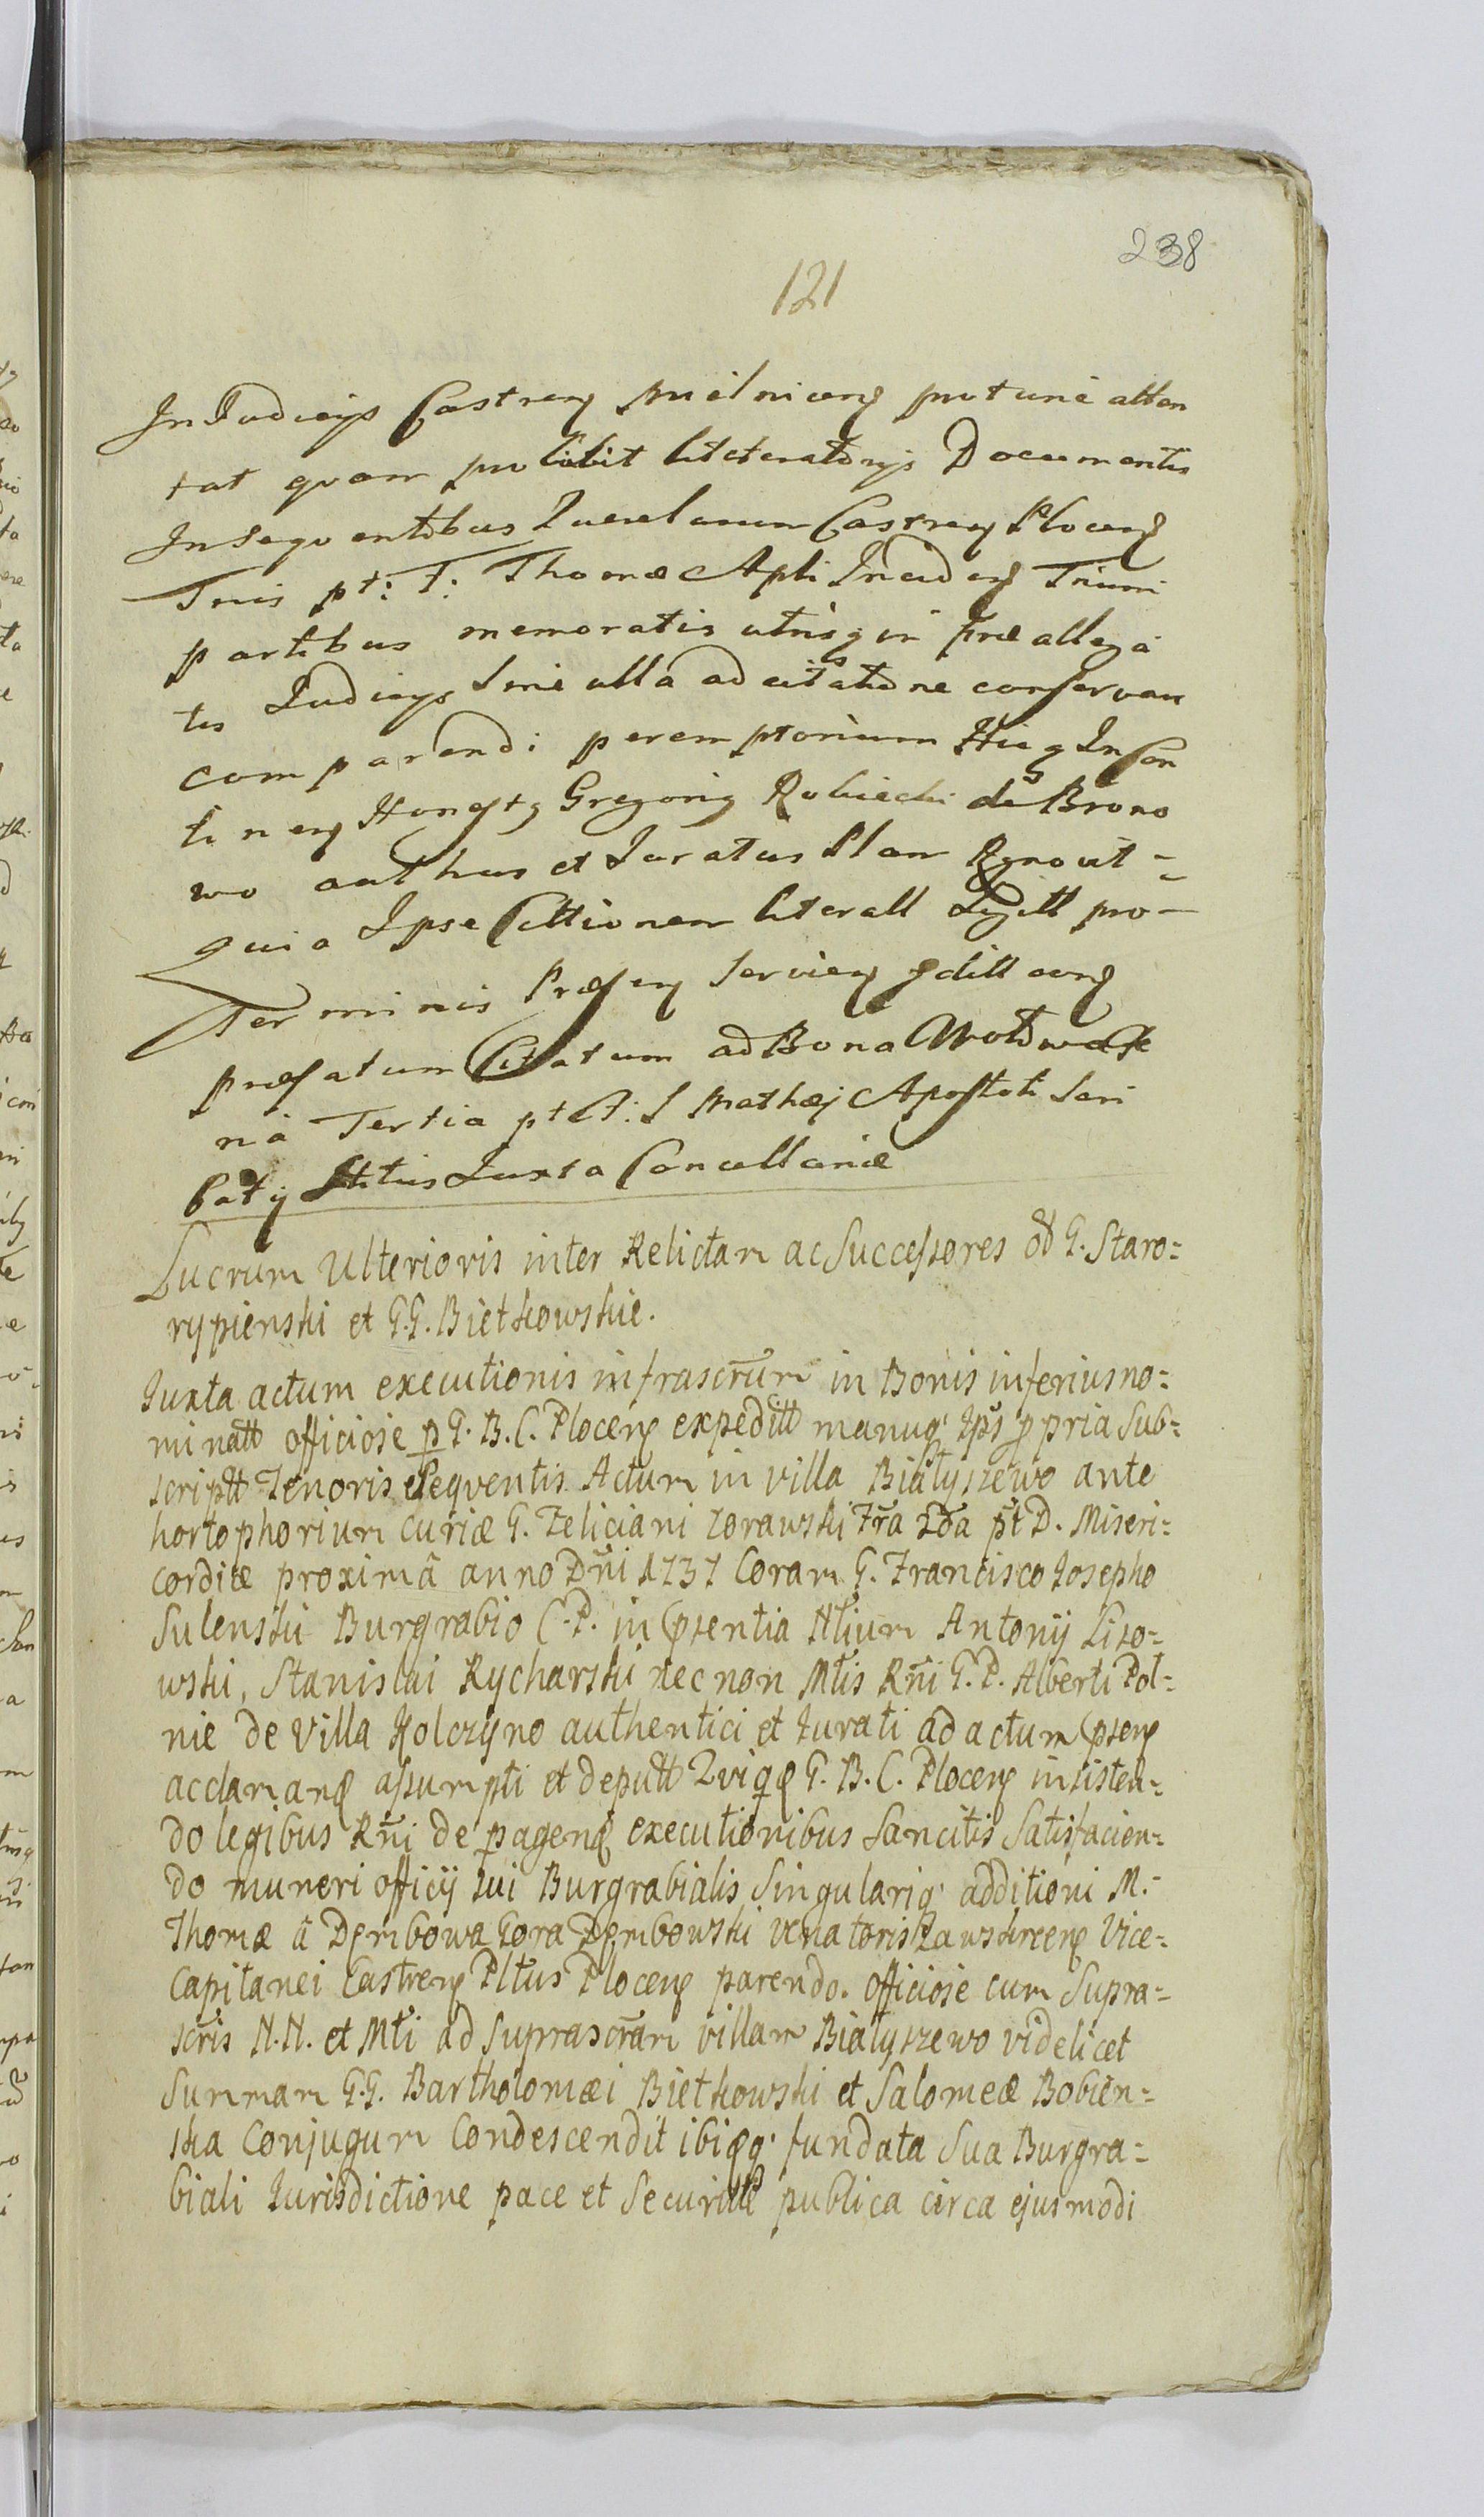 238
121
In Judicijs Castren Mielnicen protunc atten
tat quam prohibit litteratorijs Documentis
Insequentibus Querelarum Castren Plocen
Tnis pt: F: Thomæ Apli Inciden Tnum
partibus memoratis utrisque in præallega
tis Judicijs Sine ulla adcitatione conservan
comparendi peremptorium Hicq Incon
tinen Honestq Gregoriq Rubiecki de Brono
wo authus et Juratus Plan Rgnovit =
quia Ipse Cittionem literall
Terminis Præsen Servien
præfatum Citatum ad Bona
na Tertia pt F: S Mathæj Apostoli
Juxta Cancellariæ
Lucrum Ulterioris inter Relictam ac Successores od G. Staro=
rypienski et G.G. Bietkowskie.
Iuxta actum executionis infrascrum in Bonis inferius no=
minatt officiose p G. B. C. Plocen expeditt manuq' Ips ppria sub=
scriptt Tenoris Seqventis Actum in villa Białyszewo ante
hortophorium curiæ G. Feliciani Zorawski Fra 2da pt D. Miseri=
cordiæ proximâ anno Dni 1737 Coram G. Francisco Iosepho
Sulenski Burgrabio C. P. in psentia Nlium Antonij Liso=
wski, Stanislai Rycharski nec non Mtis Rni G. P. Alberti Pol=
nie de Villa Kolczyno authentici et Iurati ad actum psen
acclamand assumpti et deputt Quiqd G. B. C. Plocen insisten=
do legibus Rni de pagend executionibus Sancitis Satisfacien=
do muneri officij sui Burgrabialis Singulariq' additioni M.
Thomæ â Dembowa Gora Dembowski venatoris Zawskrcen Vice=
Capitanei Castren Pltus Plocen parendo. officiose cum Supra=
scris N.N. et Mti ad Suprascram villam Białyszewo videlicet
Summam G.G. Bartholomæi Bietkowski et Salomeæ Bobien=
ska Conjugum Condescendit ibiqq' fundata Sua Burgra=
biali Iurisdictione pace et Securitte publica circa ejusmodi